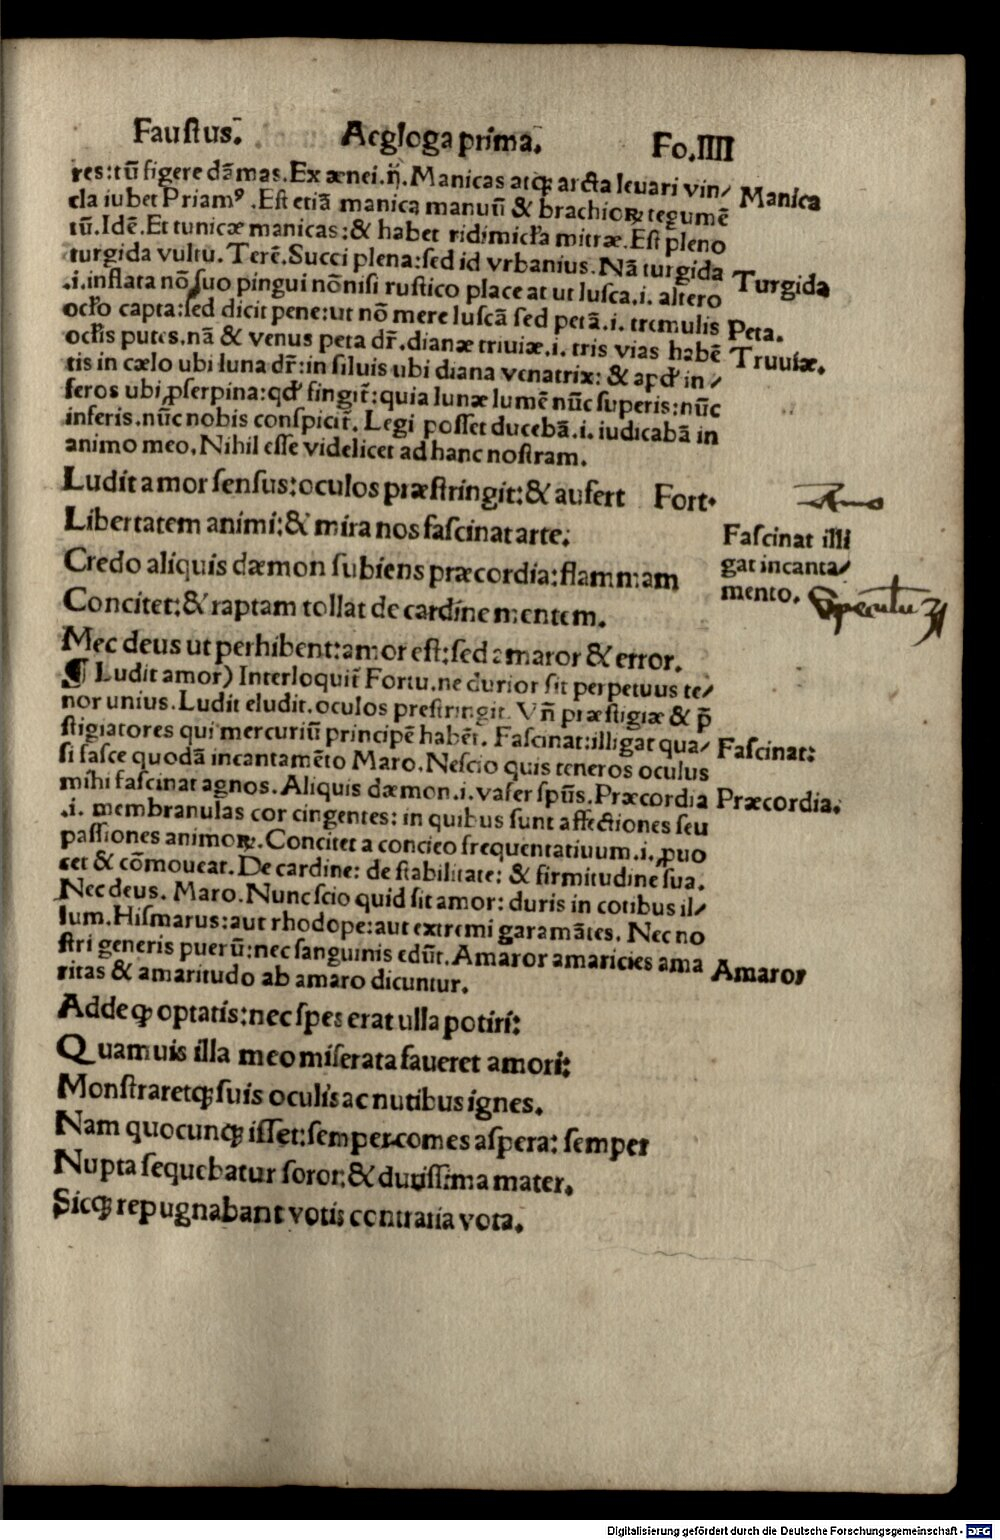 Fauſtus. Aegloga prima. Fo.IIII
res:tū figere dāmas.Ex ænei.ij.Manicas atqꝫ arcta leuari vin⸗ Manica
cla iubet Priamꝰ.Eſt etiā manica manuū & brachioꝝ tegumē
tū.Idē.Et tunicæ manicas:& habet ridimicła mitræ.Eſt pleno
turgida vultu.Terē.Succi plena:ſed id vrbanius.Nā turgida Turgida
.i.inflata nō ſuo pingui nōniſi ruſtico placeat ut luſca.i. altero
ocło capta:ſed dicit pene:ut nō mere luſcā ſed petā.i. tremulis Peta.
ocłis putes.nā & venus peta dr̄.dianæ triuiæ.i. tris vias habē Truuiæ.
tis in cælo ubi luna dr̄:in ſiluis ubi diana venatrix: & apđ in⸗
feros ubi ꝓſerpina:qđ fingit̄:quia lunæ lumē nūc ſuperis:nūc
inferis.nūc nobis conſpicit̄. Legi poſſet ducebā.i. iudicabā in
animo meo.Nihil eſſe videlicet ad hanc noſtram.
Ludit amor ſenſus:oculos præſtringit:& aufert Fort.
Libertatem animi:& mira nos faſcinat arte. Faſcinat illi
Credo aliquis dæmon ſubiens præcordia:flammam gat incanta⸗
Concitet:& raptam tollat de cardine mentem. mento.
Mec deus ut perhibent:amor eſt:ſed amaror & error.
¶ Ludit amor) Interloquit̄ Fortu.ne durior ſit perpetuus te⸗
nor unius.Ludit eludit.oculos preſtringit. Vn̄ præſtigiæ & p̄
ſtigiatores qui mercuriū principē habēt. Faſcinat:illigat qua⸗ Faſcinat:
ſi faſce quodā incantamēto Maro.Neſcio quis teneros oculus
mihi faſcinat agnos.Aliquis dæmon.i.vafer ſpūs.Præcordia Præcordia.
.i. membranulas cor cingentes: in quibus ſunt affectiones ſeu
paſſiones animoꝝ.Concitet a concieo frequentatiuum.i.ꝓuo
cet & cōmoueat.De cardine: de ſtabilitate: & firmitudine ſua.
Nec deus. Maro.Nunc ſcio quid ſit amor: duris in cotibus il⸗
lum.Hiſmarus:aut rhodope:aut extremi garamātes. Nec no
ſtri generis puerū:nec ſanguinis edūt.Amaror amaricies ama Amaror
ritas & amaritudo ab amaro dicuntur.
Adde qꝫ optatis:nec ſpes erat ulla potiri:
Quamuis illa meo miſerata faueret amori:
Monſtraretqꝫ ſuis oculis ac nutibus ignes.
Nam quocunqꝫ iſſet:ſemper comes aſpera: ſemper
Nupta ſequebatur ſoror:& duriſſima mater.
Sicqꝫ repugnabant votis contraria vota.
Digitalisierung gefördert durch die Deutsche Forschungsgemeinschaft - DFG